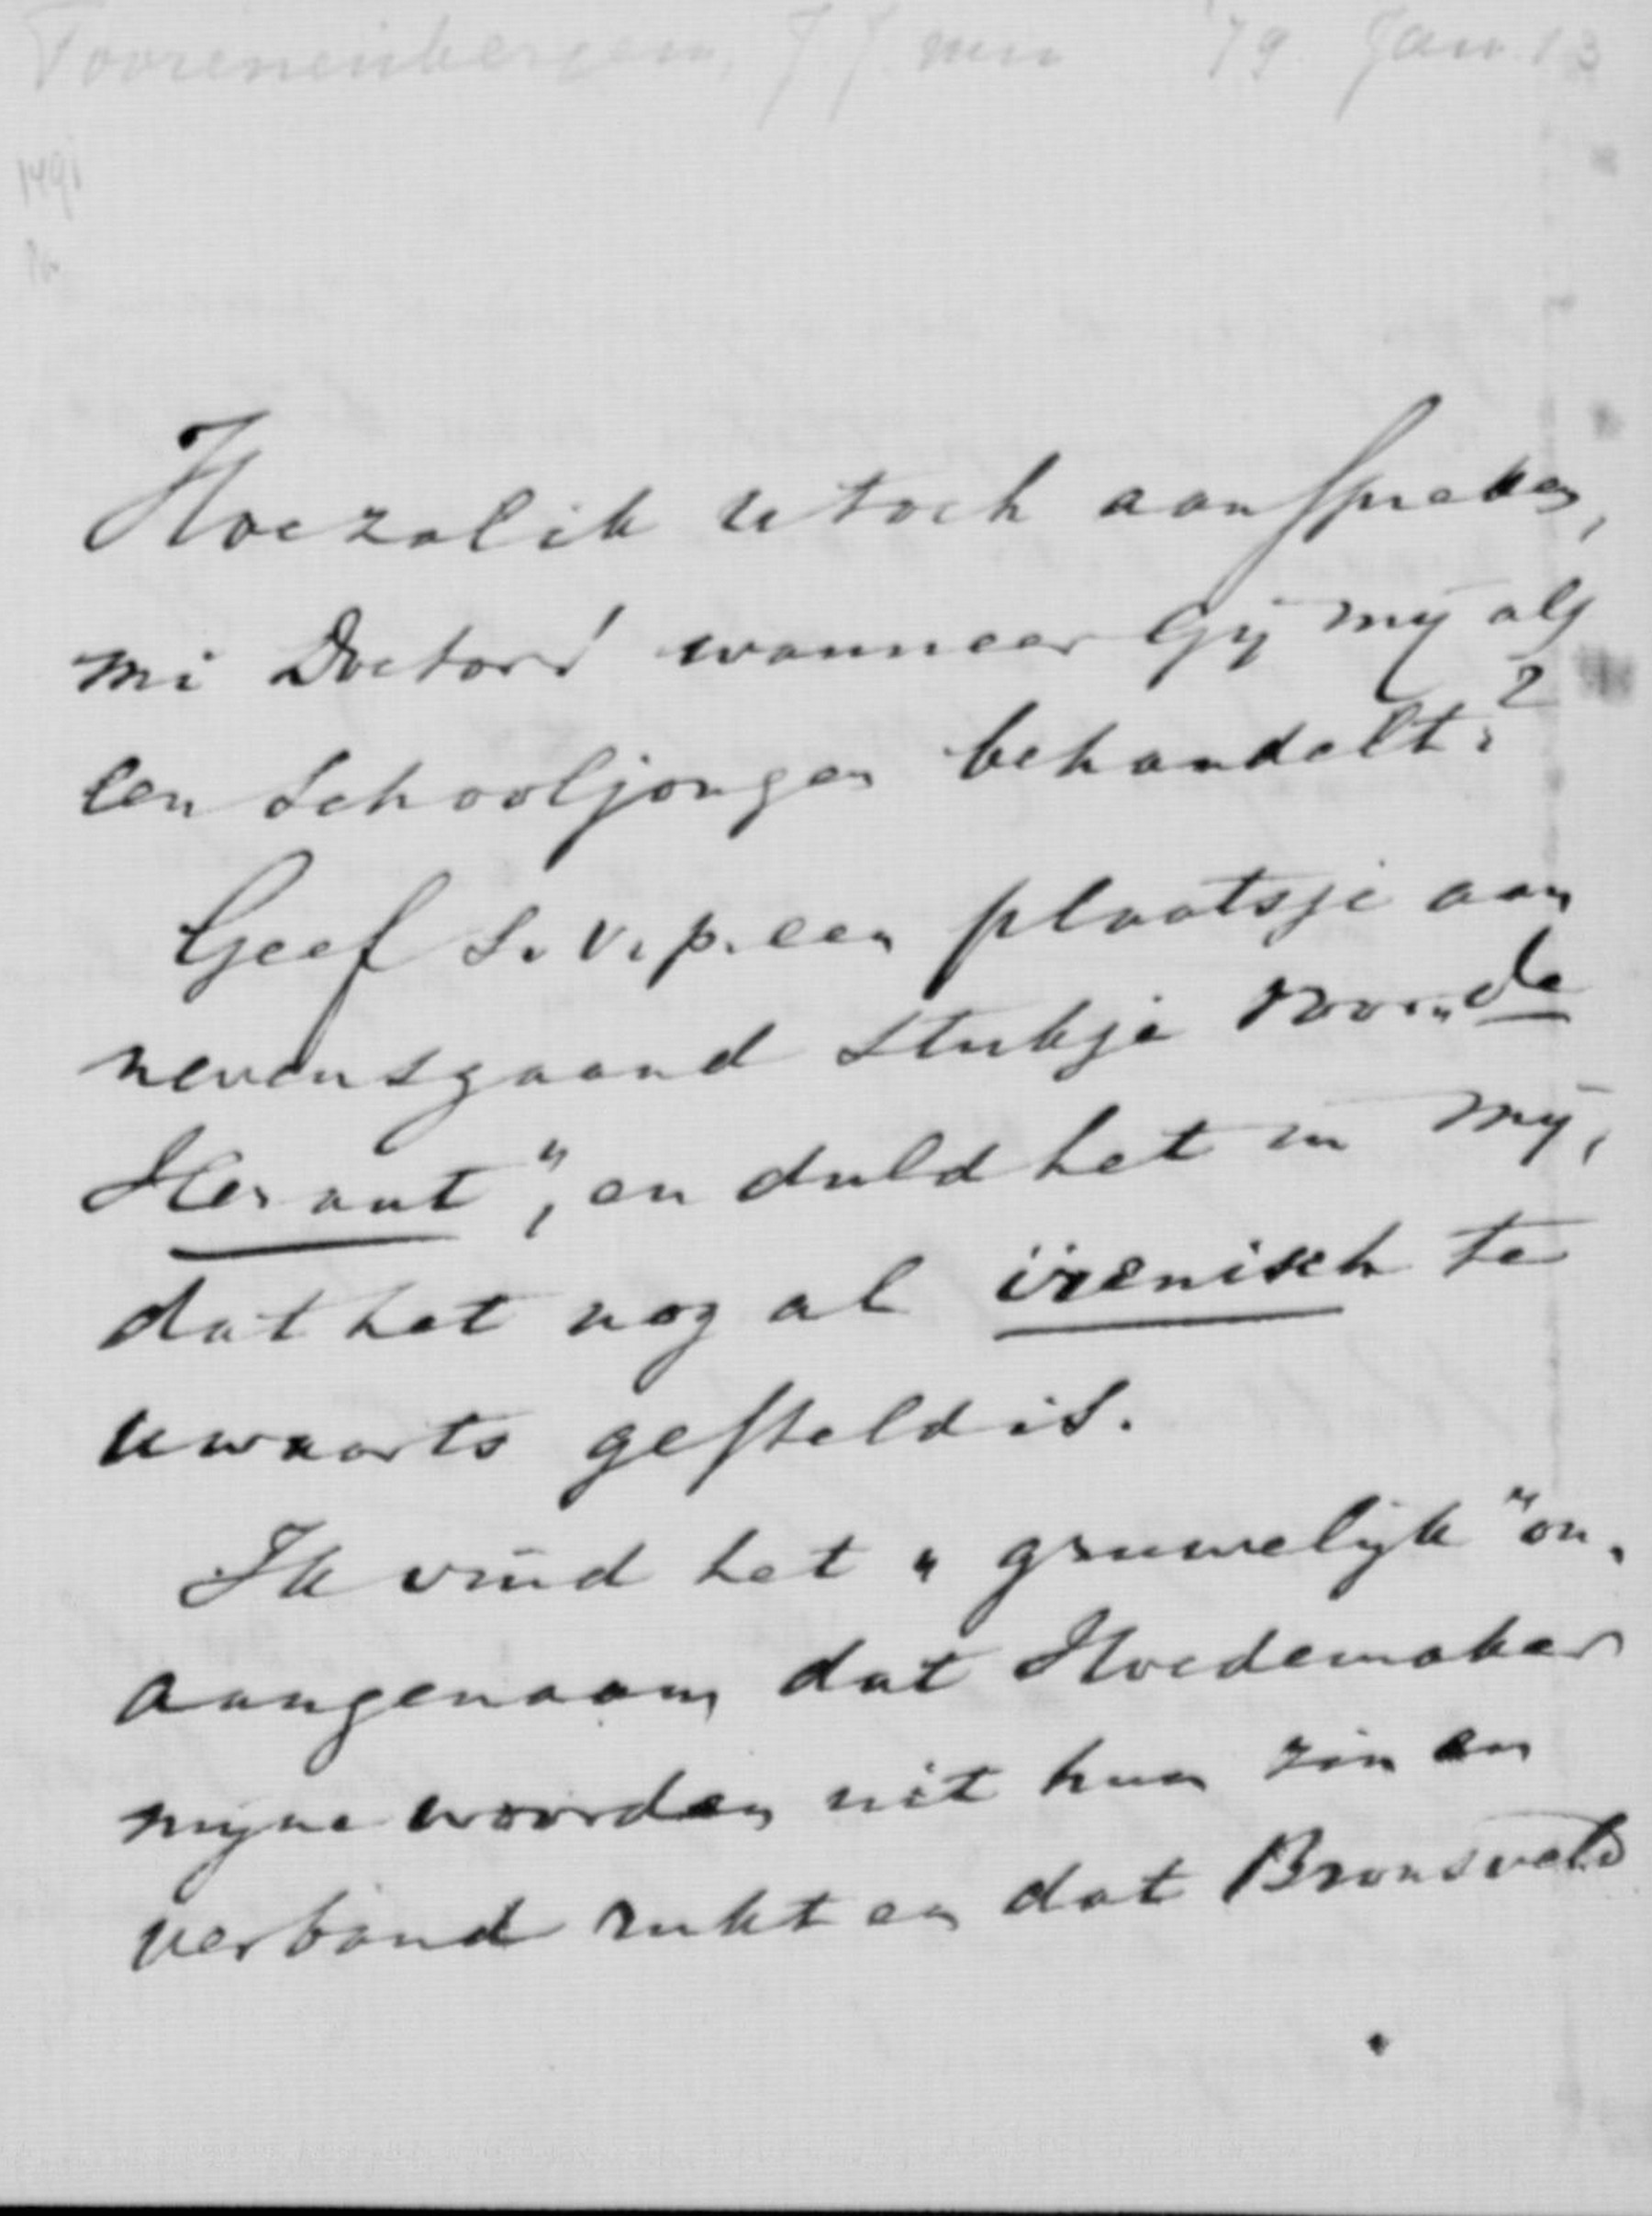 Toorenenbergen, J J. van '79. Jan. 13
1491
Hoe zal ik U toch aanspreken,
mi Doctor! wanneer Gij mij als
een schooljongen behandelt?
Geef s. v. p. een plaatsje aan
nevensgaand stukje voor „de
Heraut", en duld het in mij,
dat het nog al irenisch te
uwaarts gesteld is.
Ik vind het „gruwelijk" on-
aangenaam, dat Hoedemaker
mijne woorden uit hun zin en
verband rukt en dat Bronsveld